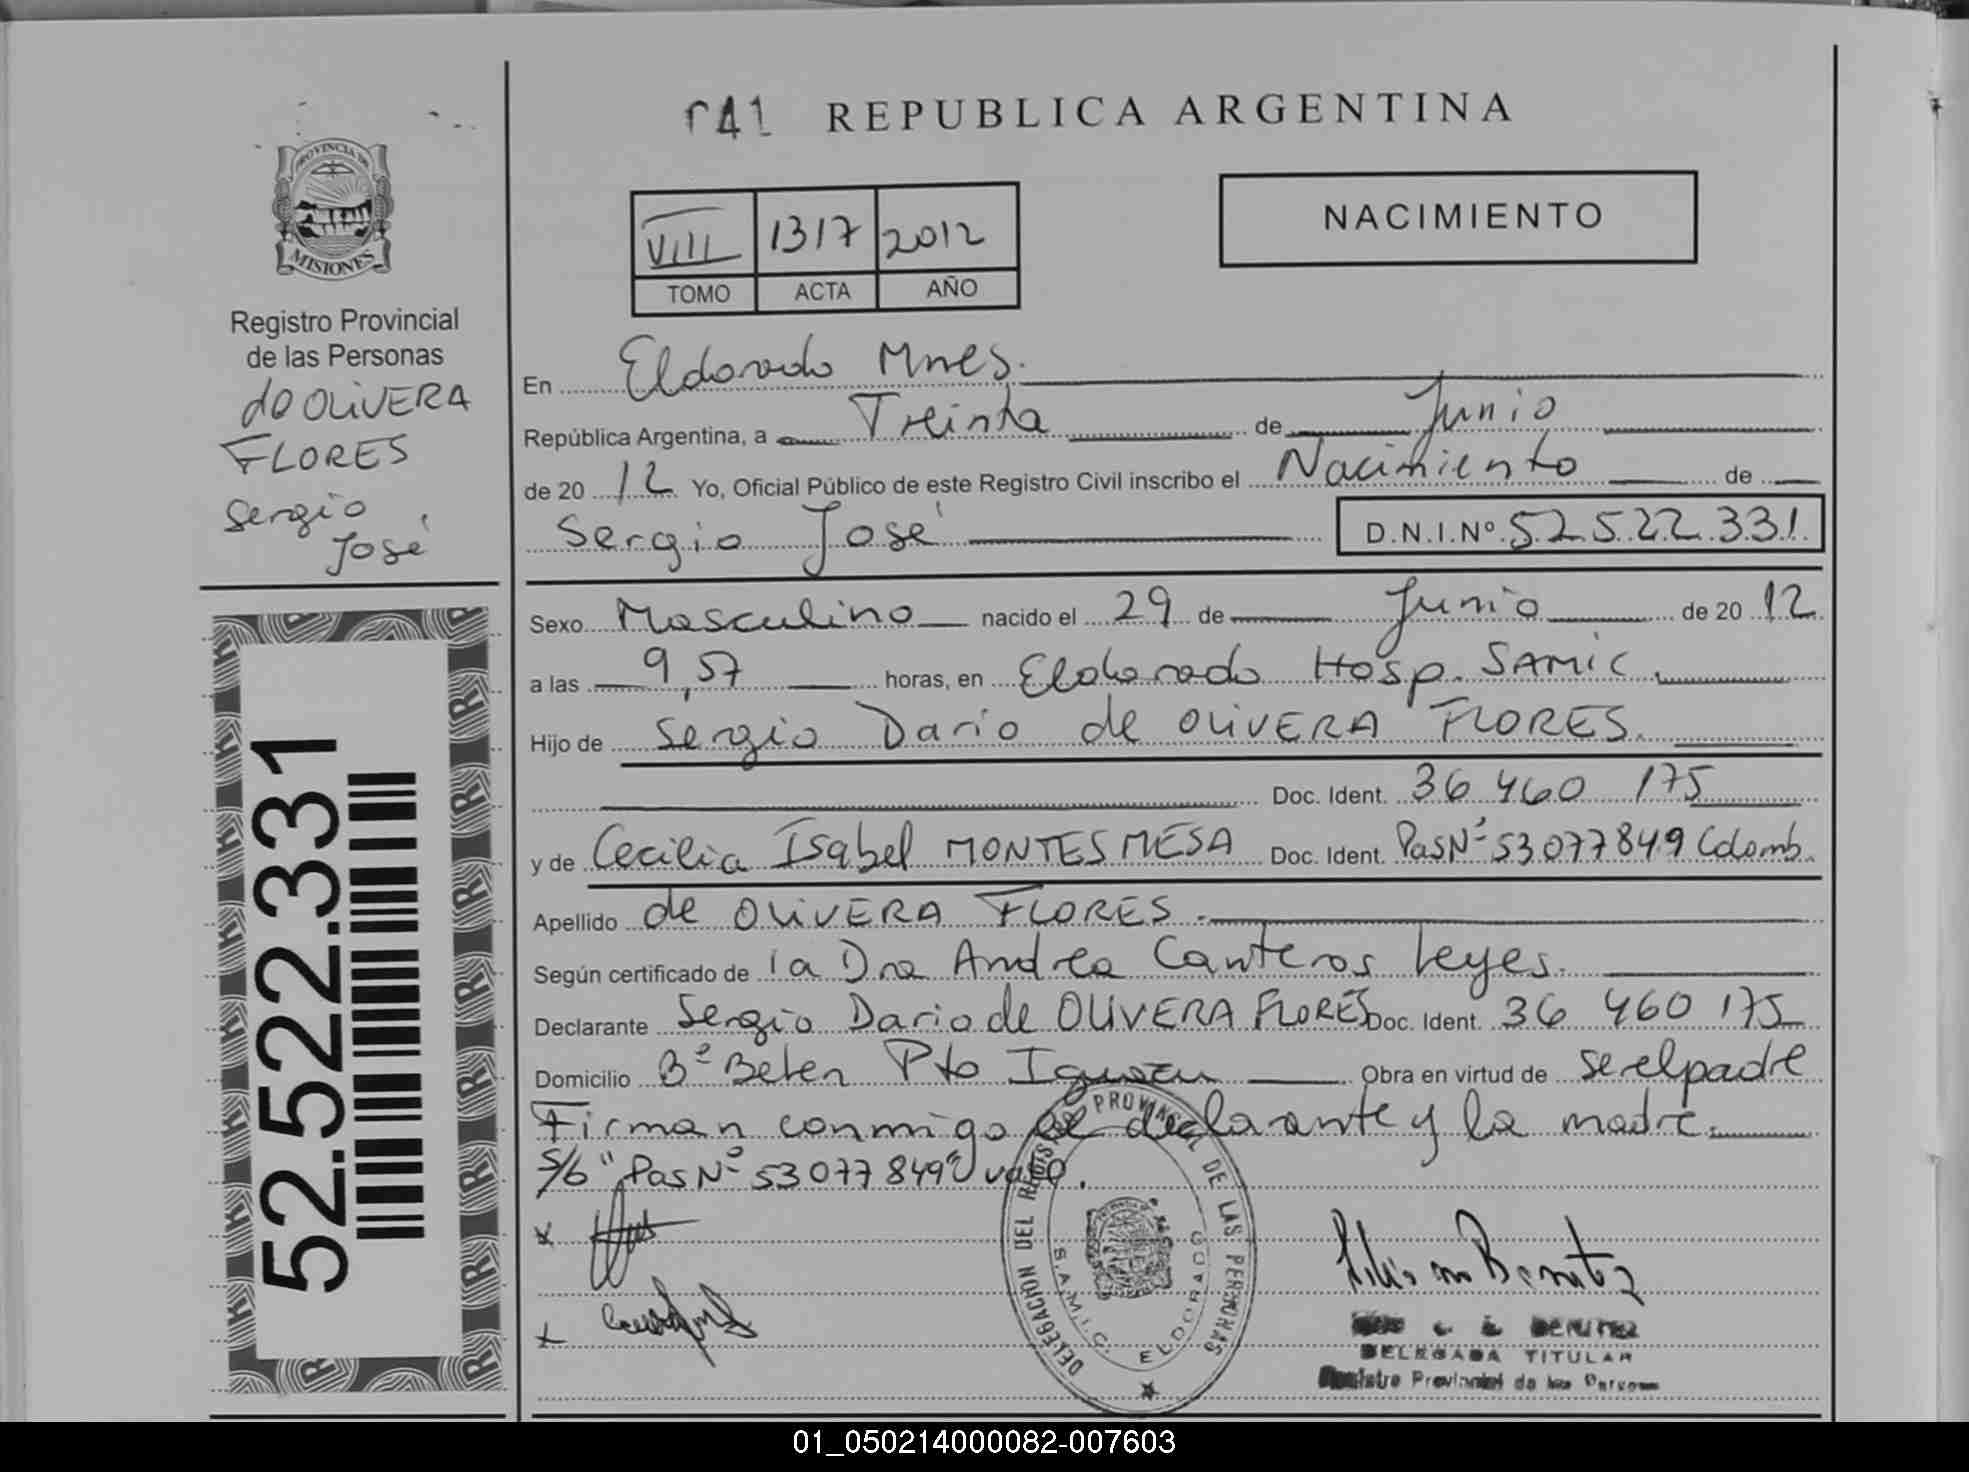 r41 REPUBLICA ARGENTINA
PROVINCIA DE
MISIONES
Registro Provincial
de las Personas
de OLIVERA
FLORES
Sergio
José
52.522.331
VIII 1317 2012
TOMO ACTA AÑO
NACIMIENTO
En Eldorado Mnes.
República Argentina, a Treinta de Junio
de 20 12 Yo, Oficial Público de este Registro Civil inscribo el Nacimiento de
Sergio José D.N.I.Nº 52.522.331
Sexo Masculino nacido el 29 de Junio de 20 12
a las 9,57 horas, en Eldorado Hosp. SAMIC
Hijo de Sergio Dario de OLIVERA FLORES.
Doc. Ident. 36 460 175
y de Cecilia Isabel MONTES MESA Doc. Ident. Pas Nº 53077849 Colomb.
Apellido de OLIVERA FLORES
Según certificado de la Dra Andrea Canteros Leyes.
Declarante Sergio Dario de OLIVERA FLORES Doc. Ident. 36 460 175
Domicilio Bº Belen Pto Iguazu Obra en virtud de ser el padre
Firman conmigo el declarante y la madre.
S/b "Pas Nº 53077849" vale.
x
x
DELEGACION DEL REGISTRO PROVINCIAL DE LAS PERSONAS
S.A.M.I.C. ELDORADO
Benitez
BENITEZ
DELEGADA TITULAR
Registro Provincial de las Personas
01_050214000082-007603